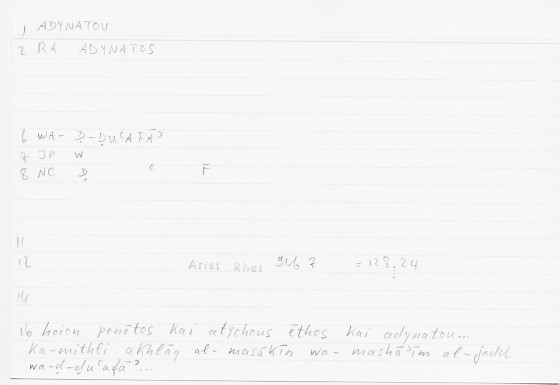 1 ADYNATOU
2 RA ADYNATOS
6 WA- Ḍ-ḌUʿAFĀʾ
7 JP W
8 NC Ḍ ʿ F̄
11
12 Arist Rhet 91b 7 = 128,24
14
16 hoion penētos kai atychous ēthos kai adynatou...
ka-mithli akhlāq al-masākīn wa-mashāʾīm al-jadd
wa-ḍ-ḍuʿafāʾ...